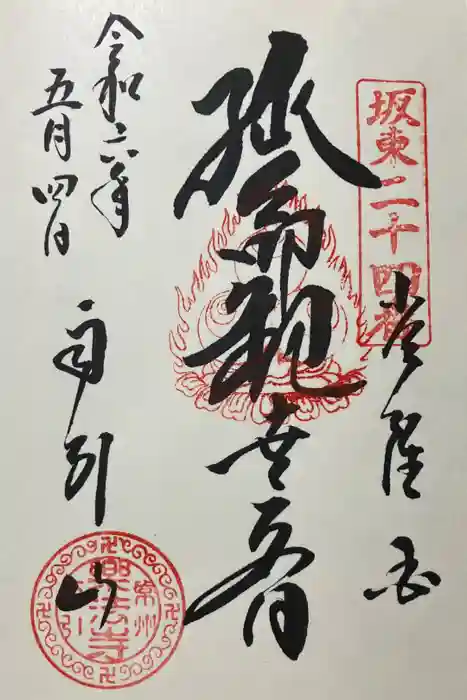 坂東二十四番
常陸国
延命観世音
令和六年
五月四日
雨引山
常州
樂法寺